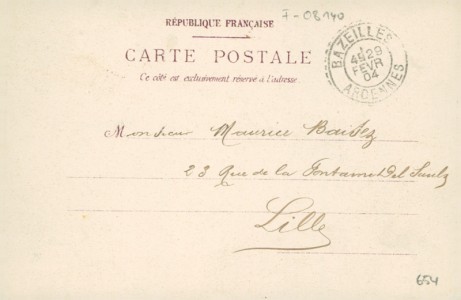 F-08140
RÉPUBLIQUE FRANÇAISE
CARTE POSTALE
Ce côté est exclusivement réservé à l'adresse
BAZEILLES
29
FEVR
04
ARDENNES
Monsieur Maurice
23 Rue de la
Lille
654